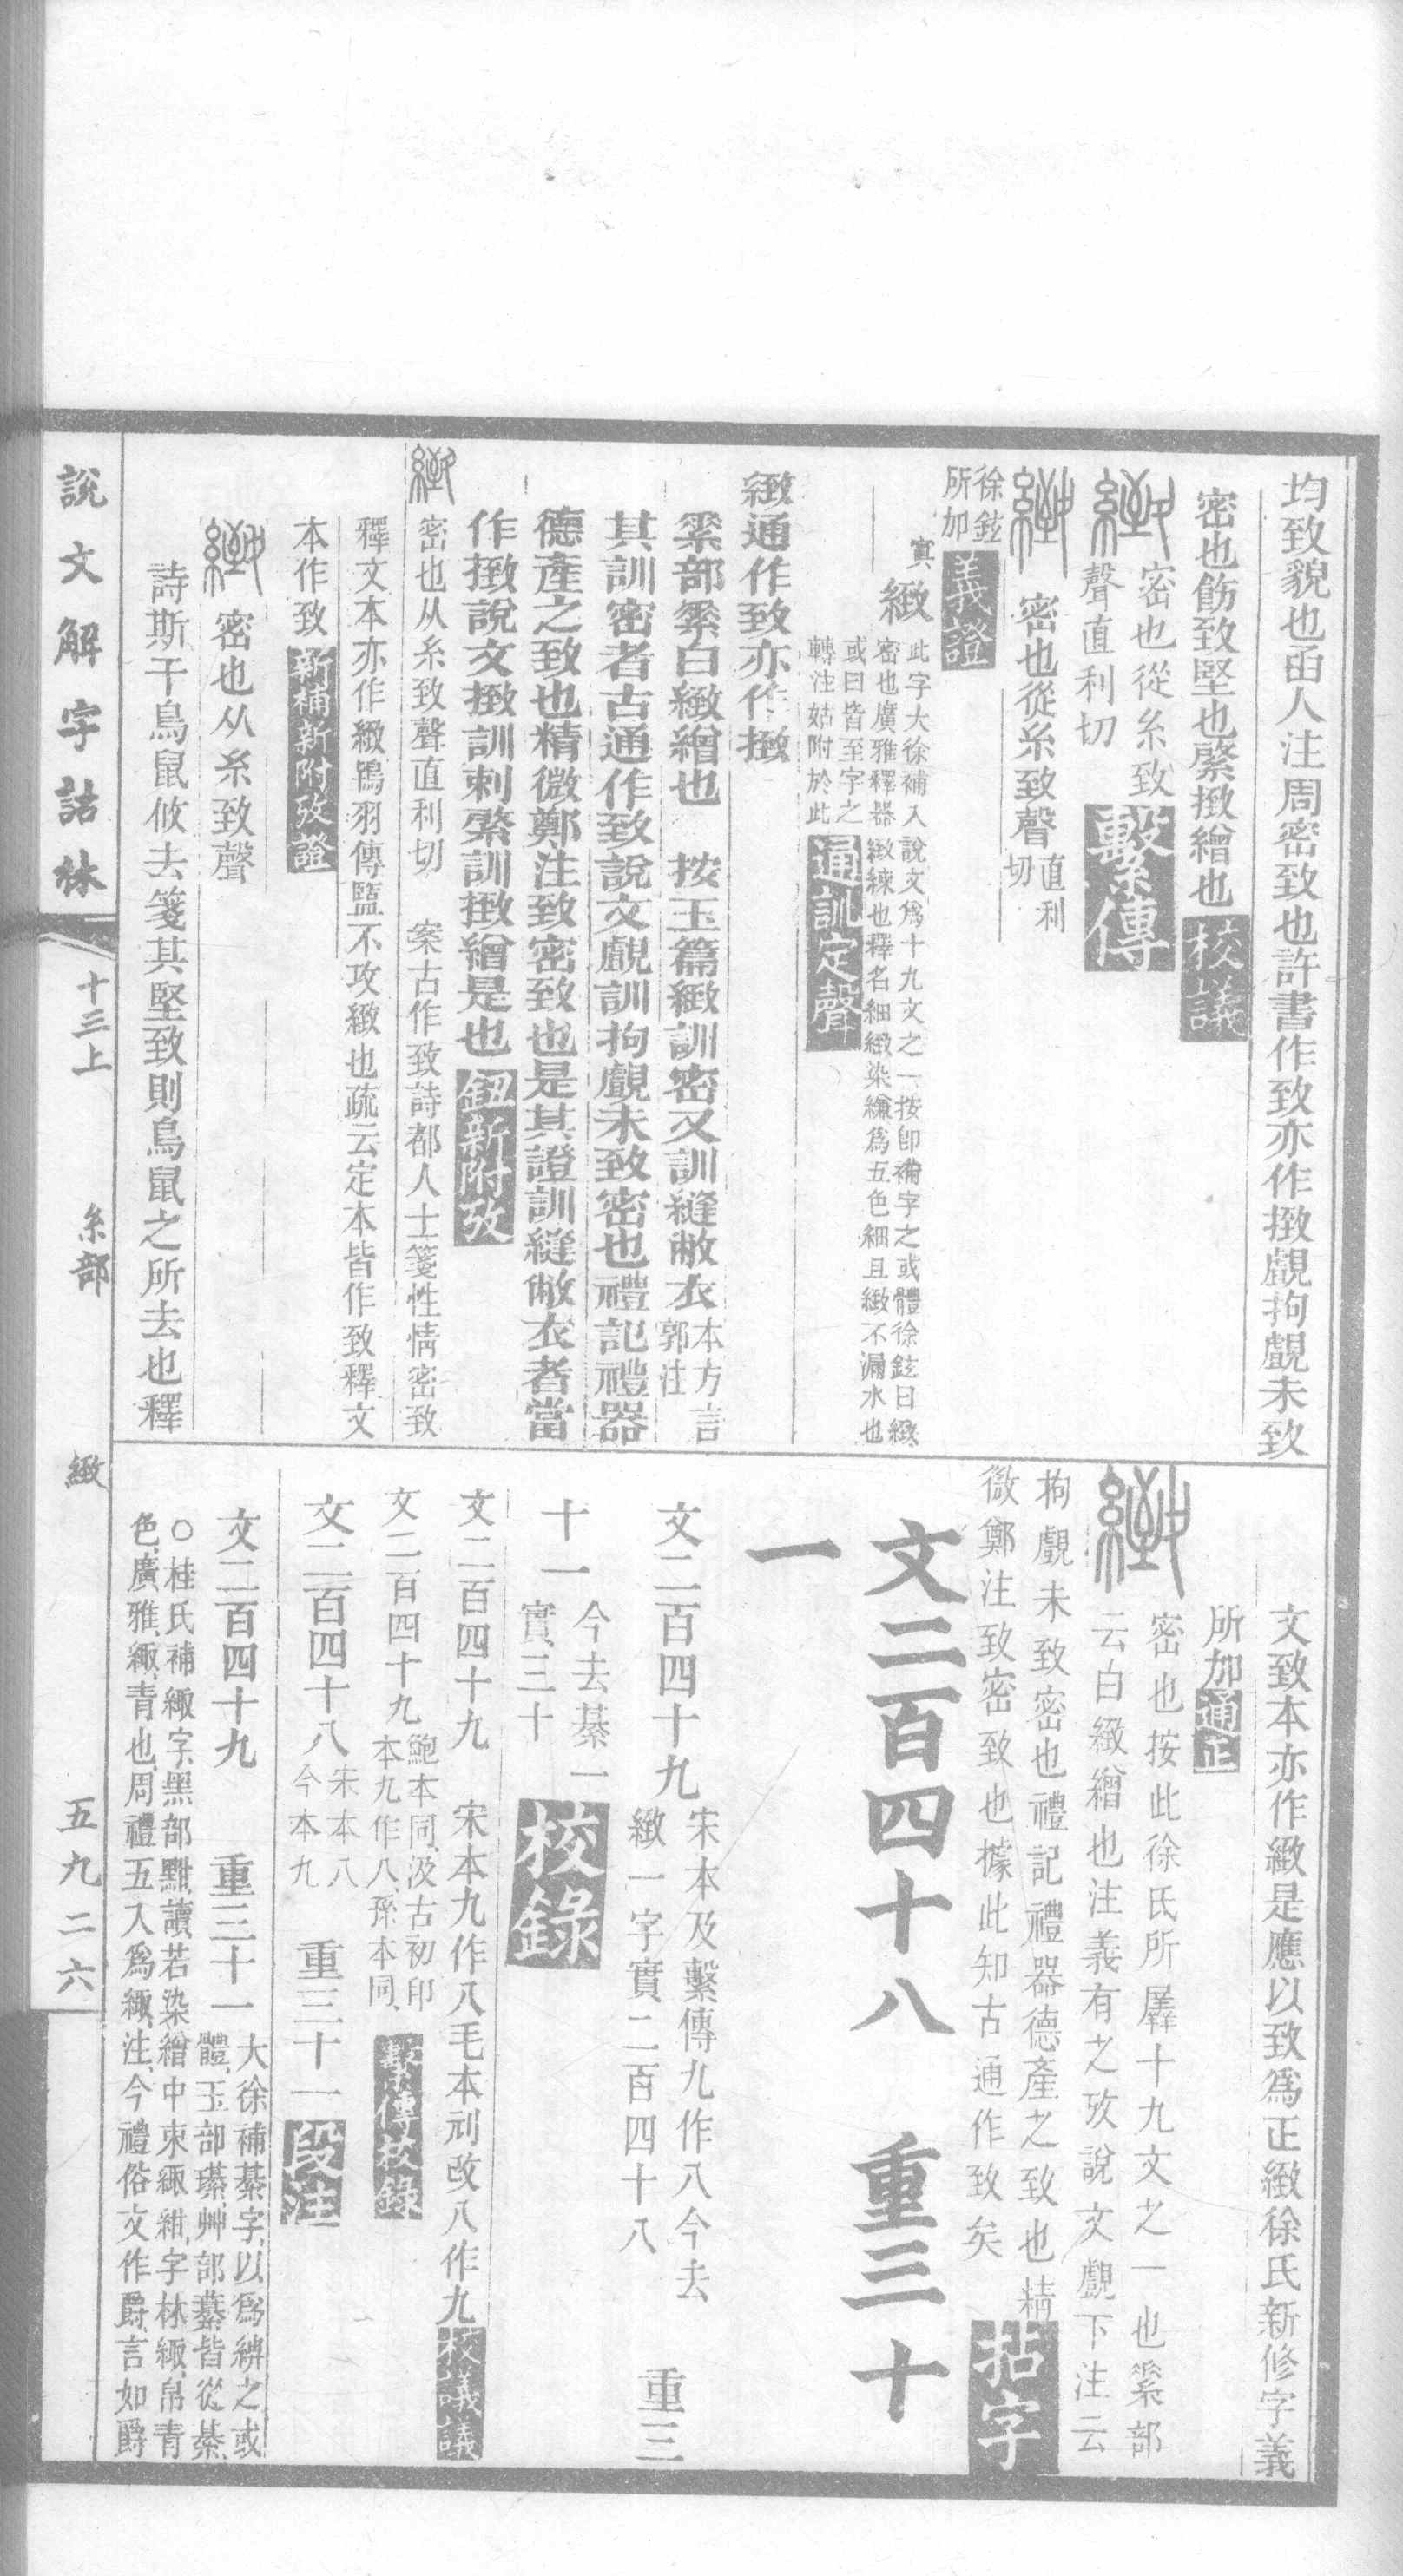 均致貌也函人注周密致也許書作致亦作㨖覰拘覰未致
密也飭致堅也綮㨖繒也校議
密也從糸致聲直利切繫傳
密也從糸致聲直利切
徐鉉所加義證
緻此字大徐補入說文爲十九文之一按卽㡀字之或體徐鉉曰緻密也廣雅釋器緻練也釋名細緻染縑爲五色細且緻不漏水也或曰皆至字之轉注姑附於此通訓定聲
緻通作致亦作㨖
糸部綮白緻繒也　按玉篇緻訓密又訓縫敝衣本方言郭注
其訓密者古通作致說文覰訓拘覰未致密也禮記禮器
德產之致也精微鄭注致密致也是其證訓縫敝衣者當
作㨖說文㨖訓刺綮訓㨖繒是也鈕新附攷
密也从糸致聲直利切　案古作致詩都人士箋性情密致
釋文本亦作緻鴇羽傳盬不攻緻也疏云定本皆作致釋文
本作致新補新附攷證
密也从糸致聲
詩斯干鳥鼠攸去箋其堅致則鳥鼠之所去也釋
文致本亦作緻是應以致爲正緻徐氏新修字義
所加通正
密也按此徐氏所羼十九文之一也糸部
云白緻繒也注義有之攷說文覰下注云
拘覰未致密也禮記禮器德產之致也精
微鄭注致密致也據此知古通作致矣拈字
文二百四十八　重三十
一
文二百四十九宋本及繫傳九作八今去緻一字實二百四十八　重三
十一今去綦一實三十校錄
文二百四十九　宋本九作八毛本刓改八作九校議議
文二百四十九鮑本同汲古初印本九作八孫本同繫傳校錄
文二百四十八宋本八今本九　重三十一段注
文二百四十九　重三十一大徐補綦字以爲綥之或體玉部璂艸部藄皆從綦
○桂氏補緅字黑部黬讀若染繒中束緅紺字林緅帛青
色廣雅緅青也周禮五入爲緅注今禮俗文作爵言如爵
說文解字詁林
十三上
糸部
緻
五九二六